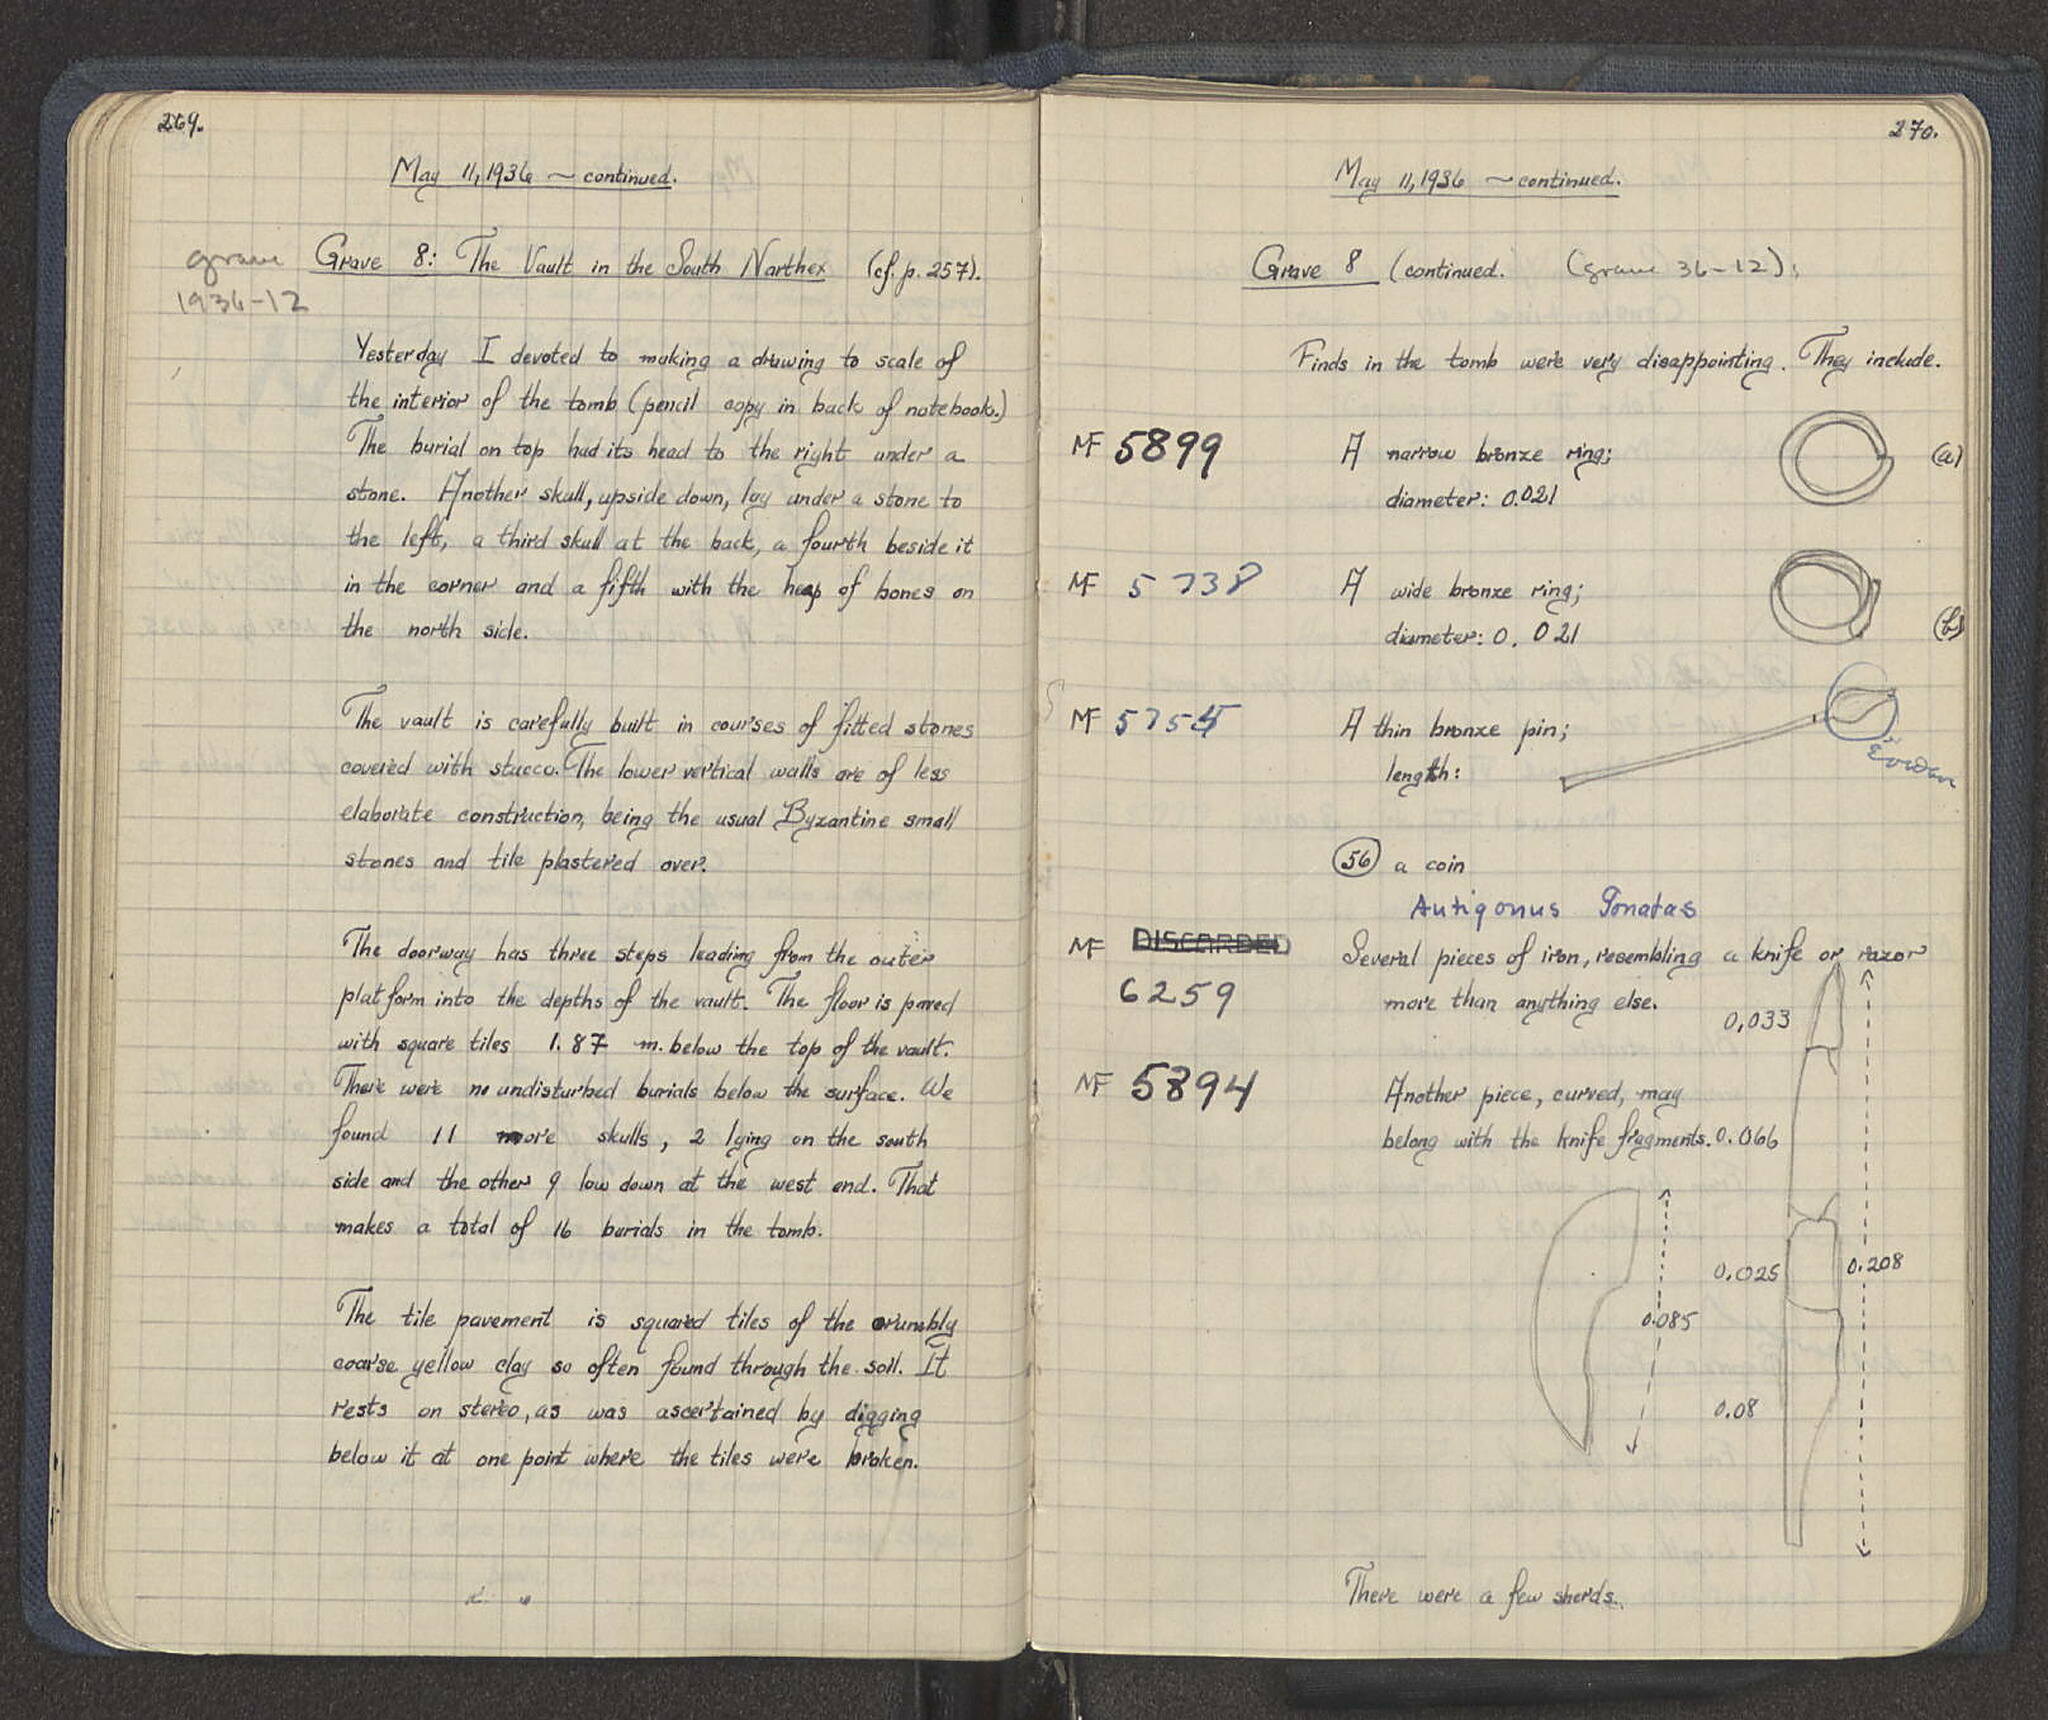 269.
May 11, 1936 ~ continued.
grave
1936-12
Grave 8: The Vault in the South Narthex (cf. p. 257).
Yesterday I devoted to making a drawing to scale of
the interior of the tomb (pencil copy in back of notebook.)
The burial on top had its head to the right under a
stone. Another skull, upside down, lay under a stone to
the left, a third skull at the back, a fourth beside it
in the corner and a fifth with the heap of bones on
the north side.
The vault is carefully built in courses of fitted stones
covered with stucco. The lower vertical walls are of less
elaborate construction, being the usual Byzantine small
stones and tile plastered over.
The doorway has three steps leading from the outer
platform into the depths of the vault. The floor is paved
with square tiles 1.87 m. below the top of the vault.
There were no undisturbed burials below the surface. We
found 11 more skulls, 2 lying on the south
side and the other 9 low down at the west end. That
makes a total of 16 burials in the tomb.
The tile pavement is squared tiles of the crumbly
coarse yellow clay so often found through the soil. It
rests on stereo, as was ascertained by digging
below it at one point where the tiles were broken.
270.
May 11, 1936 ~ continued.
Grave 8 (continued. (grave 36-12):
Finds in the tomb were very disappointing. They include.
MF 5899 A narrow bronze ring; (a)
diameter: 0.021
MF 5738 A wide bronze ring; (b)
diameter: 0.021
MF 5755 A thin bronze pin;
length:
56 a coin
Antigonus Gonatas
MF DISCARDED Several pieces of iron, resembling a knife or razor
6259 more than anything else.
0,033
MF 5894 Another piece, curved, may
belong with the knife fragments. 0.066
0.025 0.208
0.085
0.08
There were a few sherds.